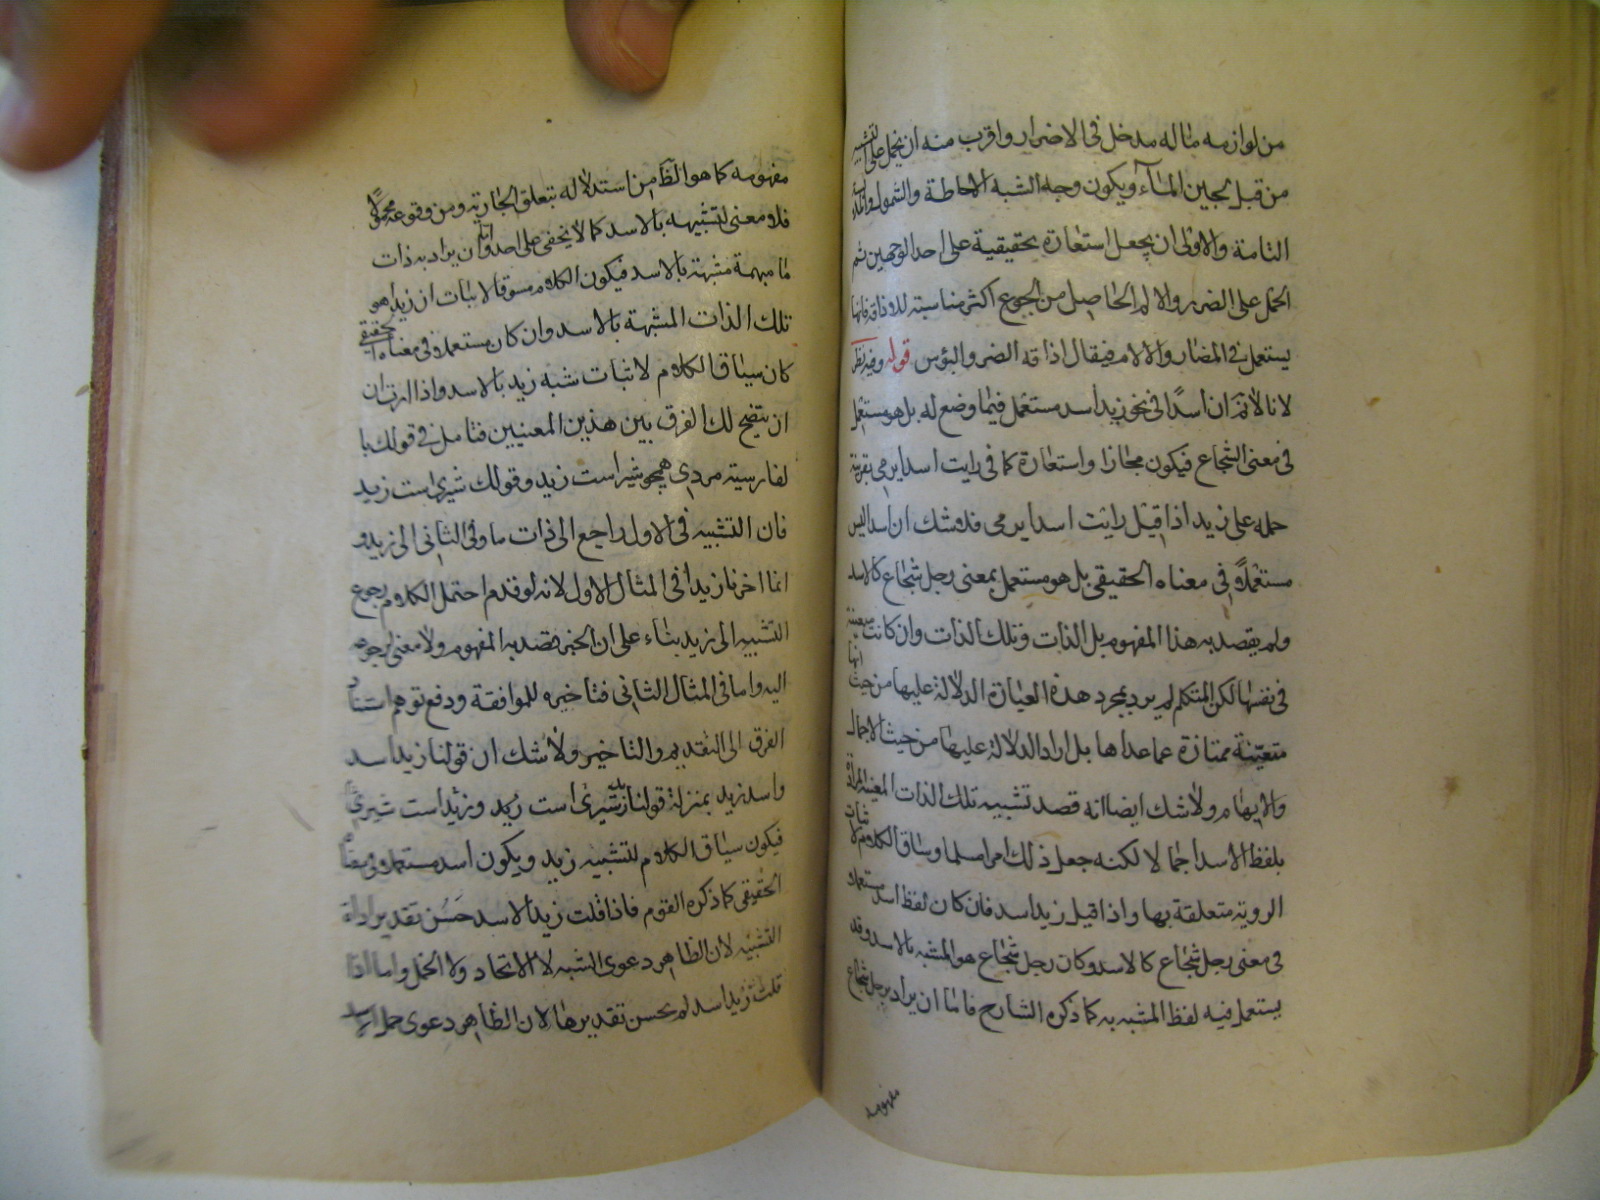 من لوازمه ماله مدخل في الاضرار واقرب منه ان يحمل على التشبيه
من قبل لجين الماء ويكون وجه الشبه الاحاطة والشمول والملابسة
التامة والاولى ان يجعل استعارة تحقيقية على احد الوجهين ثم
الحمل على الضر والالم الحاصل من الجوع اكثر مناسبة للاذاقة فانها
يستعمل في المضار والالام فيقال اذاقه الضر والبؤس قوله وفيه نظر
لانا لا نم ان اسدا في نحو زيد اسد مستعمل فيما وضع له بل هو مستعمل
في معنى الشجاع فيكون مجازا واستعارة كما في رايت اسدا يرمي بقرينة
حمله على زيد اذا قيل رايت اسدا يرمي فلا شك ان اسدا ليس
مستعملا في معناه الحقيقي بل هو مستعمل بمعنى رجل شجاع كالاسد
ولم يقصد به هذا المفهوم بل الذات وتلك الذات وان كانت معينة
في نفسها لكن المتكلم لم يرد بمجرد هذه العبارة الدلالة عليها من حيث انها
متعينة ممتازة عما عداها بل اراد الدلالة عليها من حيث الاجمال
والابهام ولا شك ايضا انه قصد تشبيه تلك الذات المعينة المرادة
بلفظ الاسد اجمالا لكنه جعل ذلك امرا مسلما وساق الكلام لاثبات
الروية متعلقة بها واذا قيل زيد اسد فان كان لفظ اسد مستعملا
في معنى رجل شجاع كالاسد وكان رجل شجاع هو المشبه بالاسد وقد
يستعمل فيه لفظ المشبه به كما ذكره الشارح فاما ان يراد برجل شجاع
مفهومه
مفهومه كما هو الظ من استدلاله بتعلق الجار به ومن وقوعه محمولا
فلا معنى لتشبيهه بالاسد كما لا يخفى على احد واما ان يراد به ذات
ما مبهمة مشبهة بالاسد فيكون الكلام مسوقا لاثبات ان زيدا هو
تلك الذات المشبهة بالاسد وان كان مستعملا في معناه الحقيقي
كان سياق الكلام لاثبات شبه زيد بالاسد واذا اردت
ان يتضح لك الفرق بين هذين المعنيين فتامل في قولك با
لفارسية مردي همچو شير است زيد وقولك شيري است زيد
فان التشبيه في الاول راجع الى ذات ما وفي الثاني الى زيد و
انما اخرنا زيدا في المثال الاول لانه لو قدم احتمل الكلام رجوع
التشبيه الى زيد بناء على ان الخبر قصد به المفهوم ولا معنى لرجوعه
اليه واما في المثال الثاني فتاخيره للموافقة ودفع توهم استناد
الفرق الى التقديم والتاخير ولا شك ان قولنا زيد اسد
واسد زيد بمنزلة قولنا شيرى است زيد وزيد است شيري
فيكون سياق الكلام لتشبيه زيد ويكون اسد مستعملا في معناه
الحقيقي كما ذكره القوم فاذا قلت زيد الاسد حسن تقدير اداة
التشبيه لان الظاهر دعوى الشبه لا الاتحاد ولا الحمل واما اذا
قلت زيد اسد لم يحسن تقديرها لان الظاهر دعوى حمل